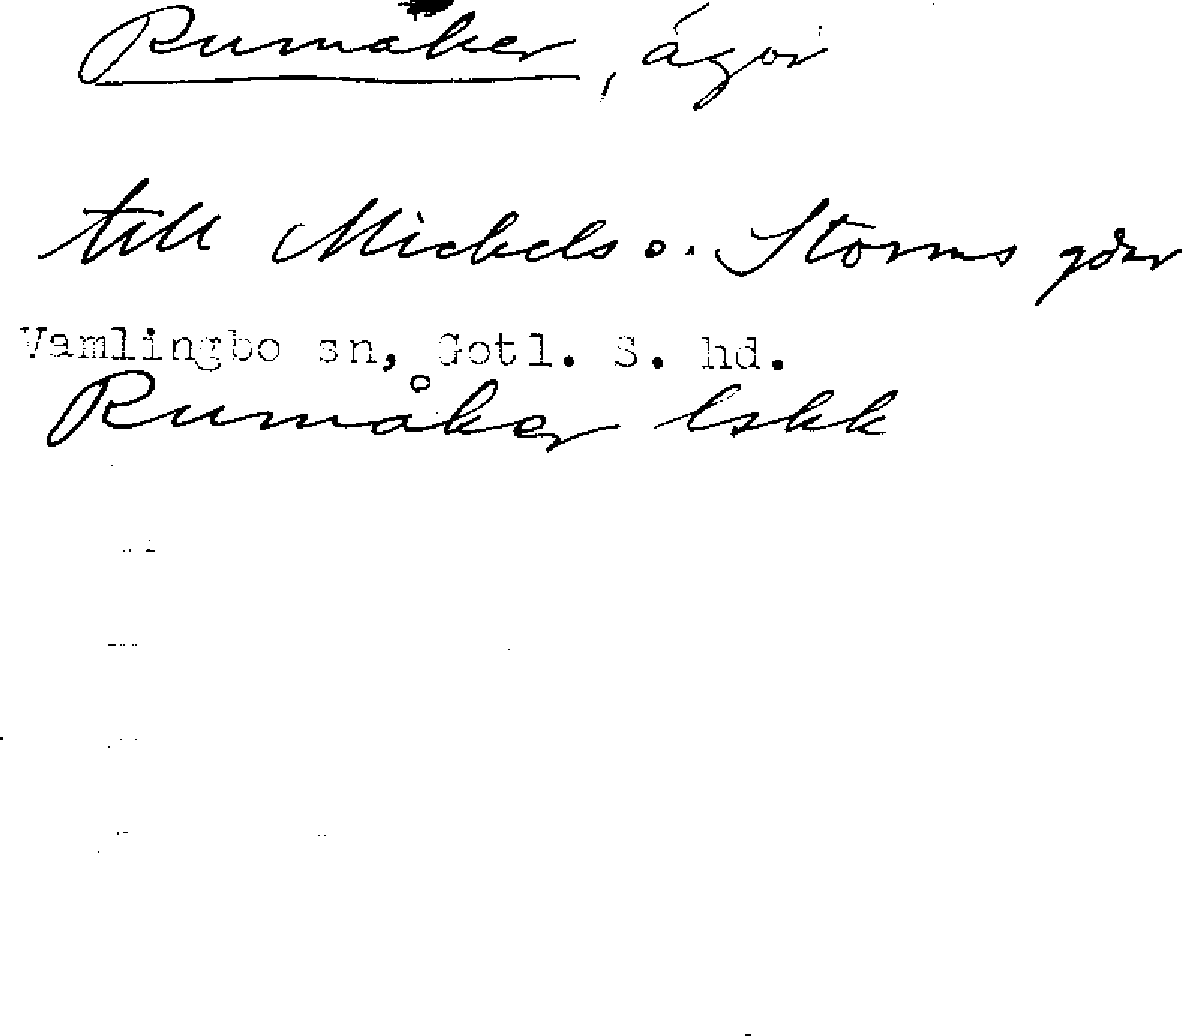 Rumåker, ägor
till Mickels o. Storms gdar
Vamlingbo sn, Gotl. S. hd.
Rumåker lskk